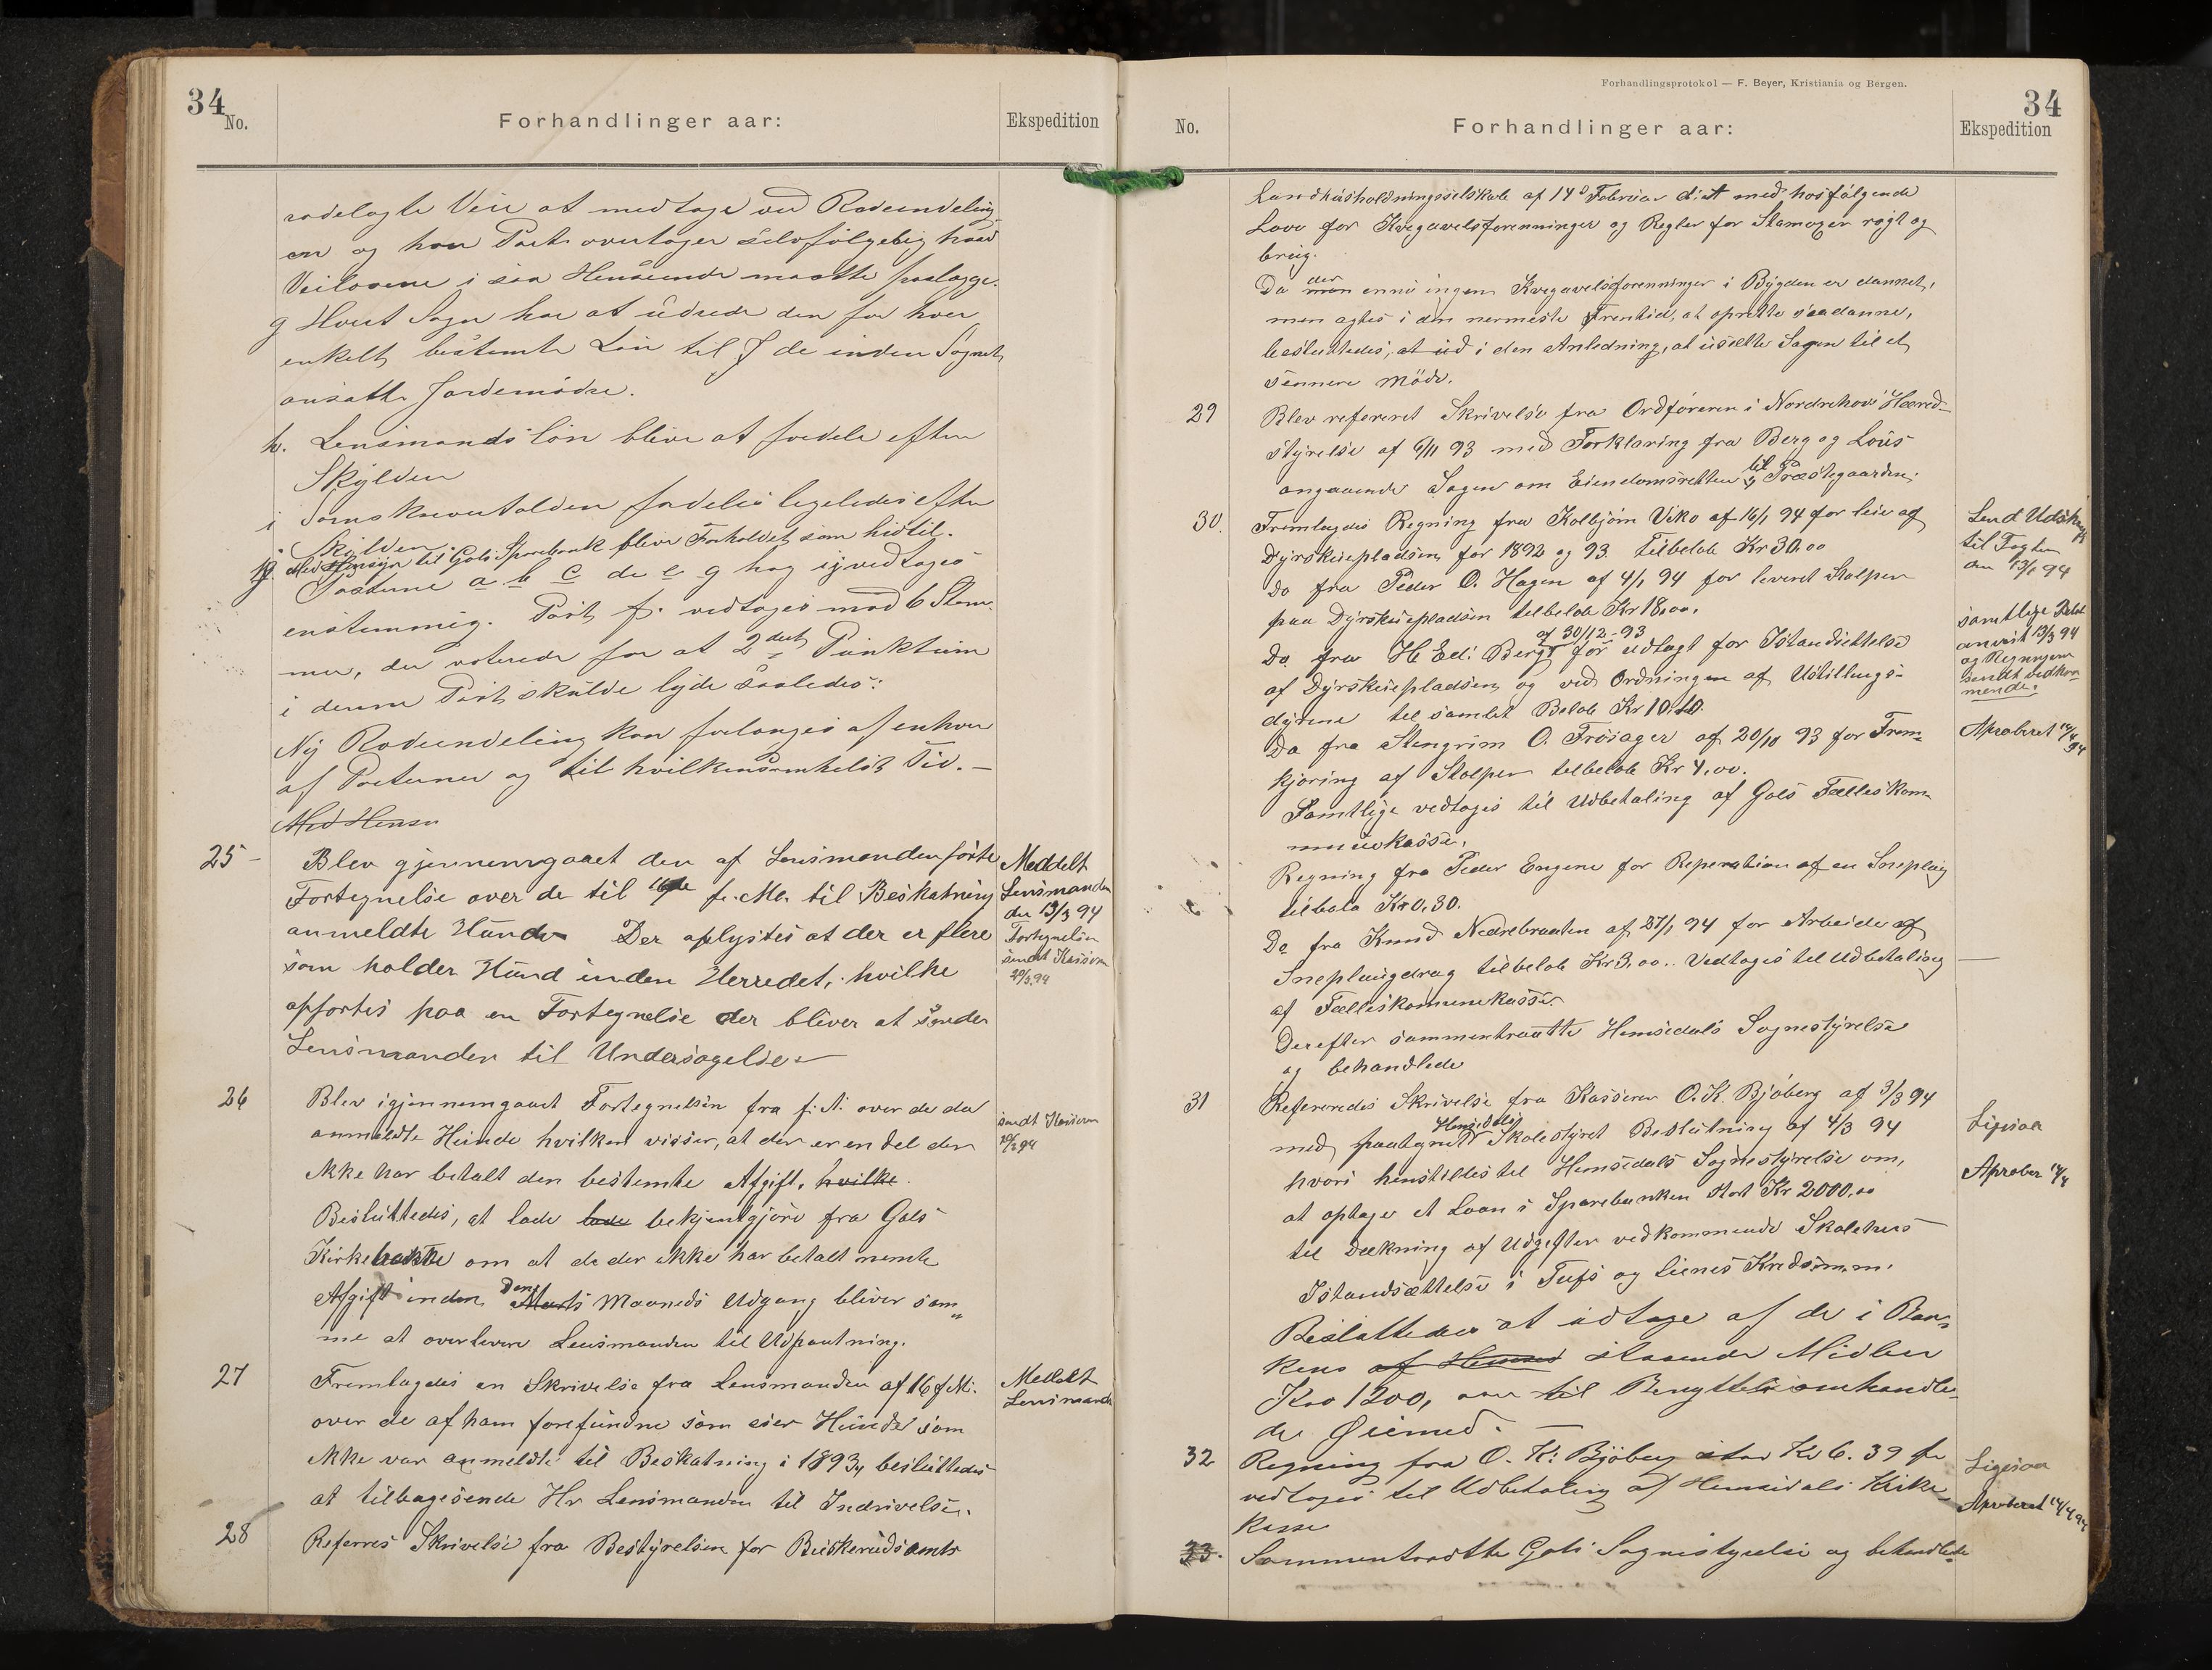 34
No.
Forhandlinger aar:
Ekspedition
rodelagte Veie at medtage ved Rodeinndeling-
en og hver Part overtager selvfølgelig hvad
Veilovene i saa Henseende maatte paalægge.
g Hvert Sogn har at udrede den for hver
enkelt bestemte Løn til de inden Sognet
ansatte Jordemødre.
h. Lensmandsløn blive at fordele efter
Skylden
i Tomskaveutolden fordeles ligeledes efter
Skylden.
j. Med Hensyn til Gols Sparebank bliver Forholdet som hidtil.
Posterne a b c d e g h og i vedtages
enstemmig. Post f. vedtages mod 6 Stem-
mer, der voterede for at 2det Punktum
i denne Post skulde lyde saaledes:
Ny Rodeinndeling kan forlanges af enhver
af Parterne og til hvilkensomhelst Tid. —
Med Hensn
25 - Blev gjennemgaaet den af Lensmanden førte
Fortegnelse over de til f. M. til Beskatning
anmeldte Hunde Der oplystes at der er flere
som holder Hund inden Herredet, hvilke
opførtes paa en Fortegnelse der bliver at sende
Lensmanden til Undersøgelse
Meddelt
Lensmanden
den 13/3 94
Fortegnelsen
sendt Kasseren
29/3 94
26 Blev igjennemgaaet Fortegnelsen fra f. A. over de da
anmeldte Hunde hvilken visser, at der er en del der
ikke har betalt den bestemte Afgift, hvilke.
Besluttedes, at lade lade bekjentgjøre fra Gols
Kirkebakke om at de der ikke har betalt nævnte
Afgift inden Denne Marts Maaneds Udgang bliver sam-
me at overlevere Lensmanden til Udpantning.
sendt Kasseren
29/3 94
27 Fremlagdes en Skrivelse fra Lensmanden af 16 f. M.
over de af ham forefundne som eier Hunde som
ikke var anmeldte til Beskatning i 1893, besluttedes
at tilbagesende Hr Lensmanden til Indrivelse.
Meddelt
Lensmanden
28 Referres Skrivelse fra Bestyrelsen for Buskeruds amts
Forhandlingsprotokol — F. Beyer, Kristiania og Bergen.
34
No.
Forhandlinger aar:
Ekspedition
Landhusholdningsselskab af 14d Februar d. A med hosfølgende
Love for Kvegavelsforenninger og Regler for Stamoxer røgt og
brug.
Da der man ennu ingen Kvegavelsforenninger i Bygden er dannet,
men agtes i den nermeste Fremtid, at oprette saadanne,
besluttedes, at ud i den Anledning, at udsætte Sagen til et
sennere Møde.
29 Blev refereret Skrivelse fra Ordføreren i Nordrehovs Hæred-
styrelse af 6/11 93 med Forklaring fra Berg og Lous
angaaende Sagen om Eiendomsretten til Præstegaarden.
30. Fremlagdes Regning fra Kolbjørn Viko af 16/1 94 for leie af
Dyrskuepladsen for 1892 og 93. Tilbeløb Kr 30,00
Do fra Peder O. Hagen af 4/1 94 for leveret Stolper
paa Dyrskuepladsen tilbeløb Kr 18,00.
Do fra H Ed. Berg af 30/12-93 for udlagt for Istandsættelse
af Dyrskuepladsen og ved Ordningen af Udstillings-
dyrene til samlet Beløb Kr 10,10.
Do fra Stengrim O. Frøsager af 20/10 93 for Frem-
kjøring af Stolper tilbeløb Kr 4,00.
Samtlige vedtoges til Udbetaling af Gols Fælleskom-
munekasse.
Regning fra Peder Engene for Reperation af en Sneplog
tilbeløb Kr 0,30.
Do fra Knud Nedrebraaten af 27/1 94 for Arbeide af
Sneplougdrag tilbeløb Kr 3,00. Vedtoges til Udbetaling
af Fælleskommunekassen.
Derefter sammentraatte Hemsedals Sognestyrelse
og behandlede
Send Udskrift
til Fogden
den 13/3 94
samtlige Beløb
anvist 13/3 94
og Regningerne
sendt vedkom-
mende.
Aproberet 14/4 94
31 Refereredes Skrivelse fra Kasserer O. K. Bjøberg af 3/3 94
med paategnet Hemsedals Skolestyret Beslutning af 4/3 94
hvori henstilles til Hemsedals Sognestyrelse om,
at optage et Laan i Sparebanken stort Kr 2000,00
til Dækning af Udgifter vedkommende Skolehus
Istandsættelse i Tufs og Lienes Kreds m. m.
Besluttedes at udtage af de i Ban-
kens af Hemsed staaende Midler
Kro 1200, som til Benyttelse omhandle-
de Øiemed. —
Ligesaa
Aprober 14/4
32 Regning fra O. K. Bjøberg stor Kr 6. 39 for
vedtoges til Udbetaling af Hemsedals Kirke-
kasse
Ligesaa
Aproberet 14/4 94
33. Sammentraadte Gols Sognestyrelse og behandlede